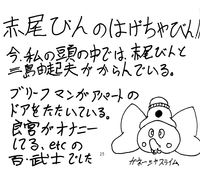 赤尾びんのはげちゃびん!!
今、私の頭の中では、赤尾びんと
三島由起夫がからんでいる。
ブリーフマンがアパートの
ドアをたたいている。
良寛がオナニー
してる、etc の
百・武士でした
かなーシャスライム